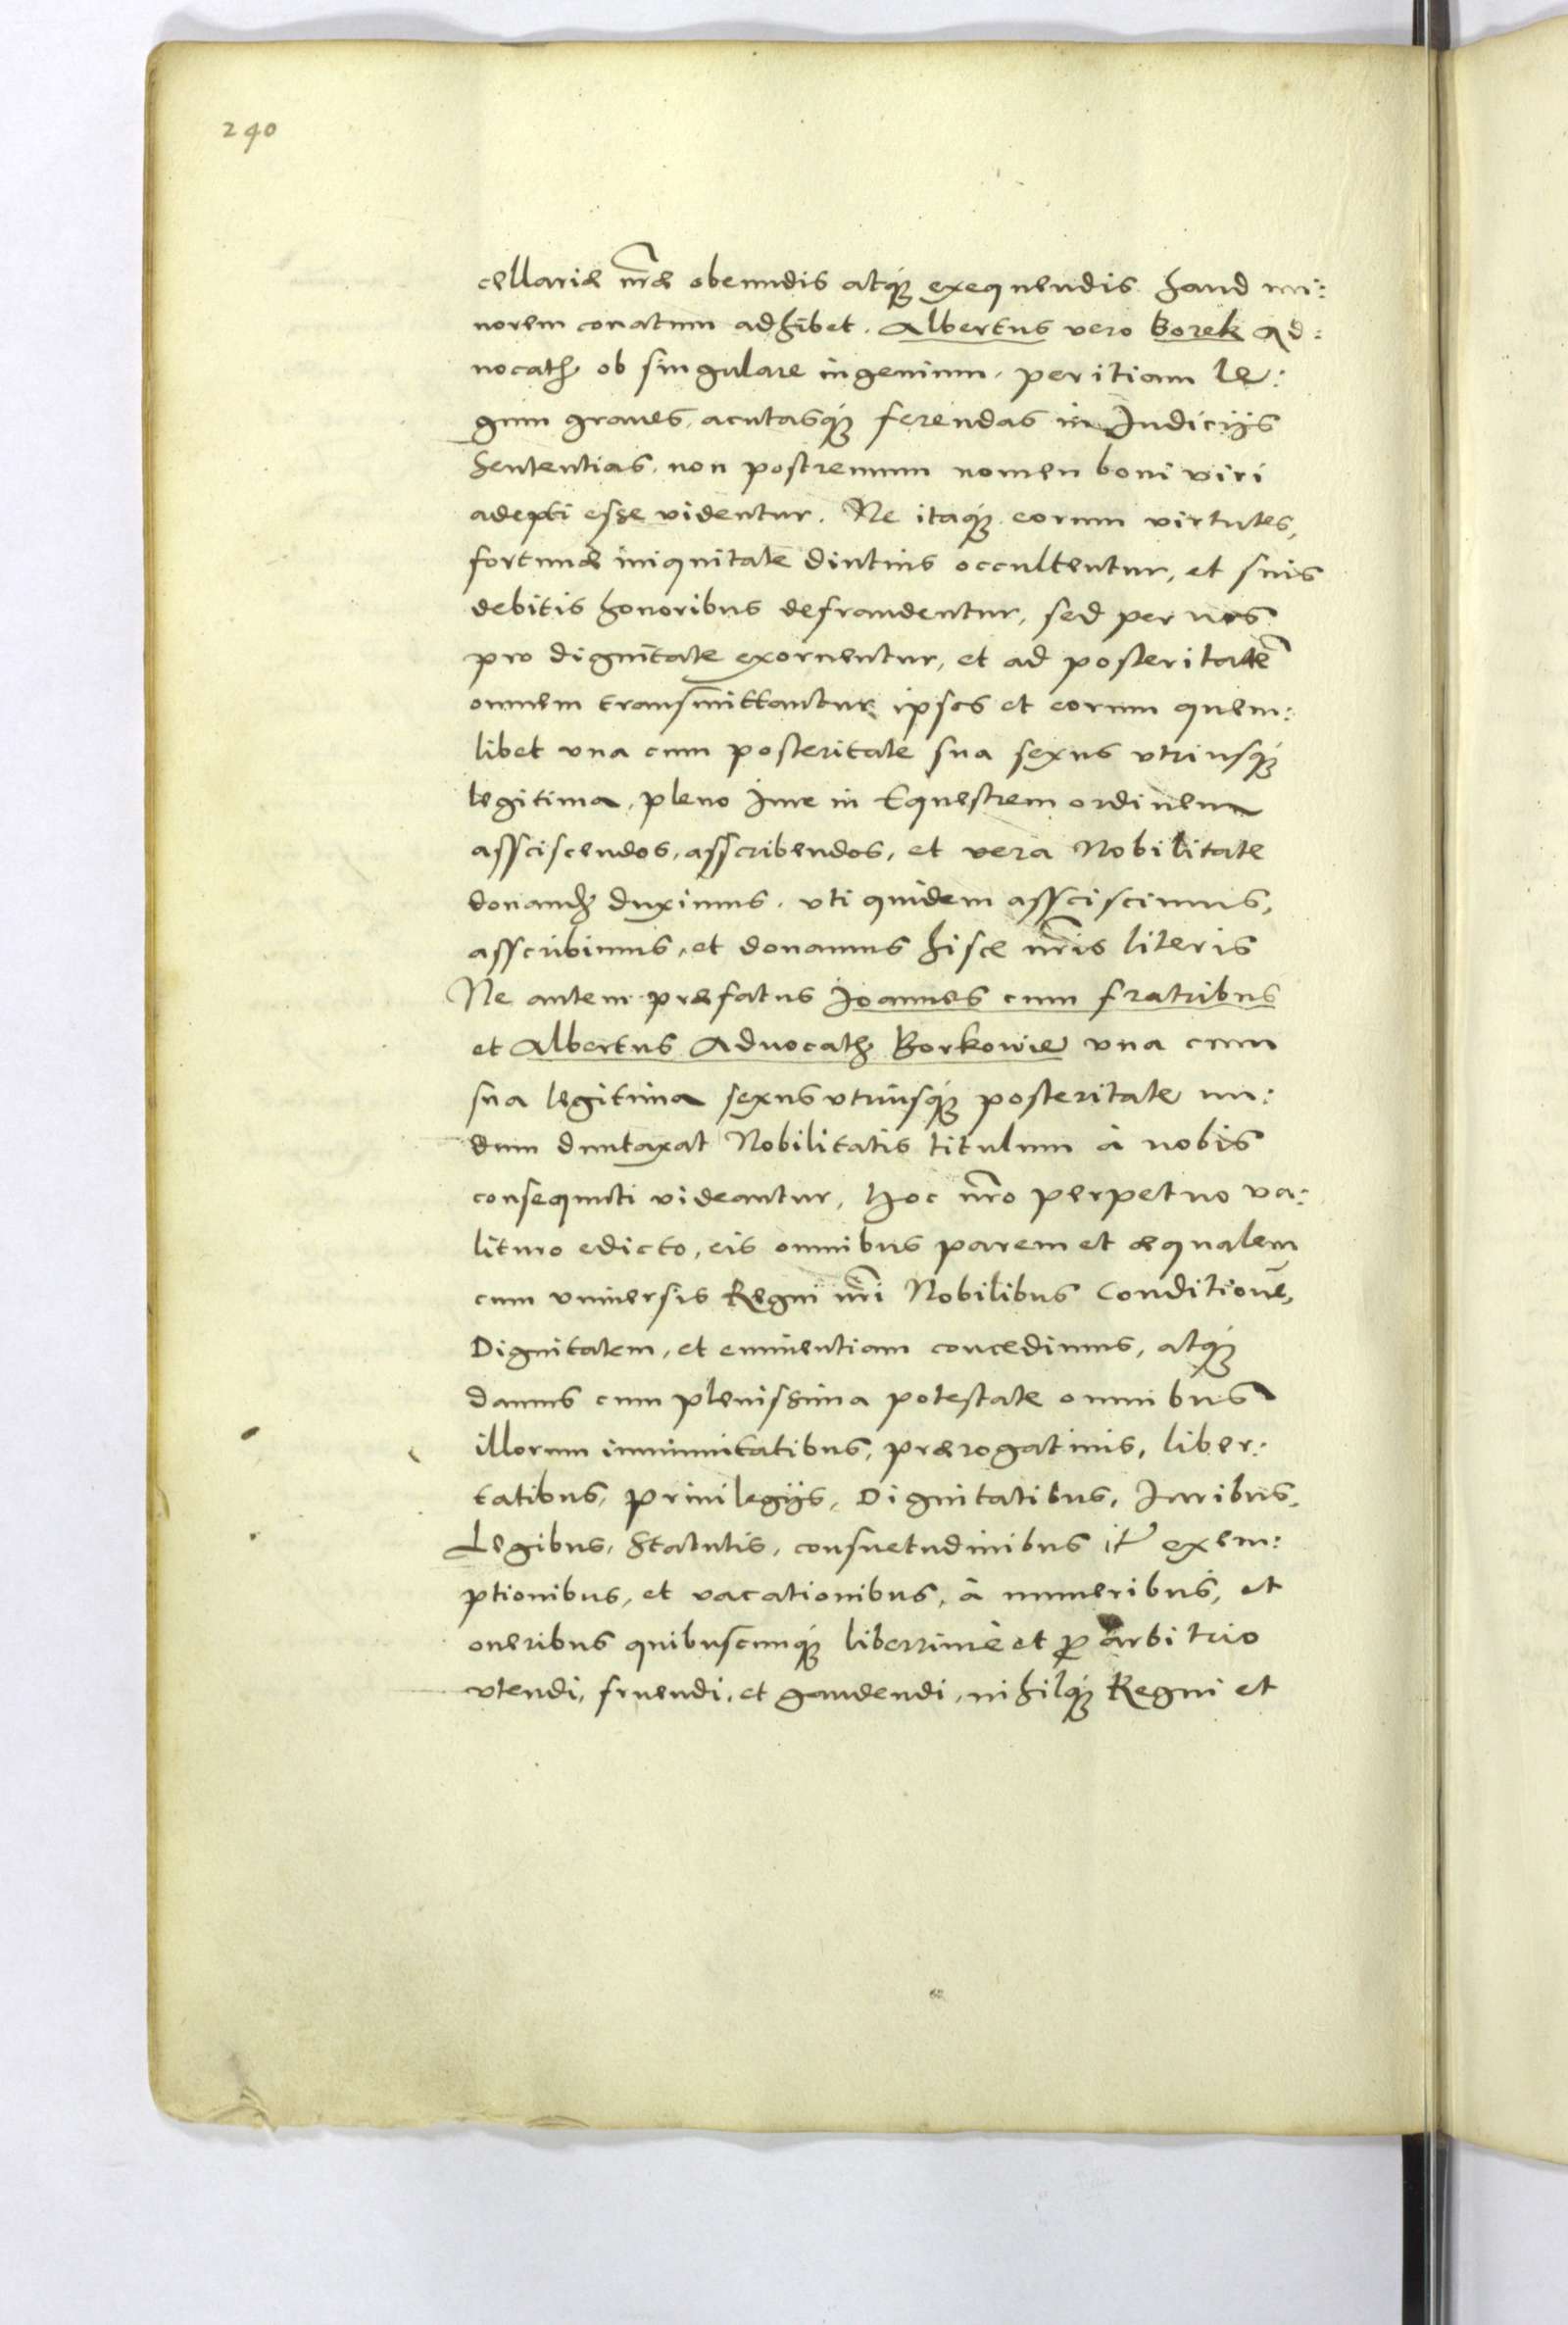 240
cellariæ nræ obeundis atq́ue exequendis haud mi:
norem conatum adhibet. Albertus vero Borek Ad:
uocatus ob singulare ingenium, peritiam le:
gum graues, acutasq́ue ferendas in Iudicijs
Sententias, non postremum nomen boni viri
adepti esse videntur. Ne itaq́ue eorum virtutes,
fortunæ iniquitate diutius occultentur, et suis
debitis honoribus defraudentur, sed per nos
pro dignitate exornentur, et ad posteritatē
omnem transmittantur, ipsos et eorum quem:
libet vna cum posteritate sua sexus vtriusq́ue
legitima, pleno iure in Equestrem ordinem
assciscendos, asscribendos, et vera Nobilitate
donandos duximus, vti quidem assciscimus,
asscribimus, et donamus hisce nris literis
Ne autem præfatus Ioannes cum fratribus
et Albertus Aduocatus Borkowie vna cum
sua legitima sexus vtriusq́ue posteritate nu:
dum duntaxat Nobilitatis titulum à nobis
consequuti videantur, hoc nro perpetuo va:
lituro edicto, eis omnibus parem et æqualem
cum vniuersis Regni nri Nobilibus Conditionē,
Dignitatem, et eminentiam concedimus, atq́ue
damus cum plenissima potestate omnibus
illorum immunitatibus, prærogatiuis, liber:
tatibus, priuilegijs, Dignitatibus, Iuribus,
Legibus, Statutis, consuetudinibus itr exem:
ptionibus, et vacationibus, à muneribus, et
oneribus quibuscunq́ue liberrimè et pro arbitrio
vtendi, fruendi, et gaudendi, nihilq́ue Regni et